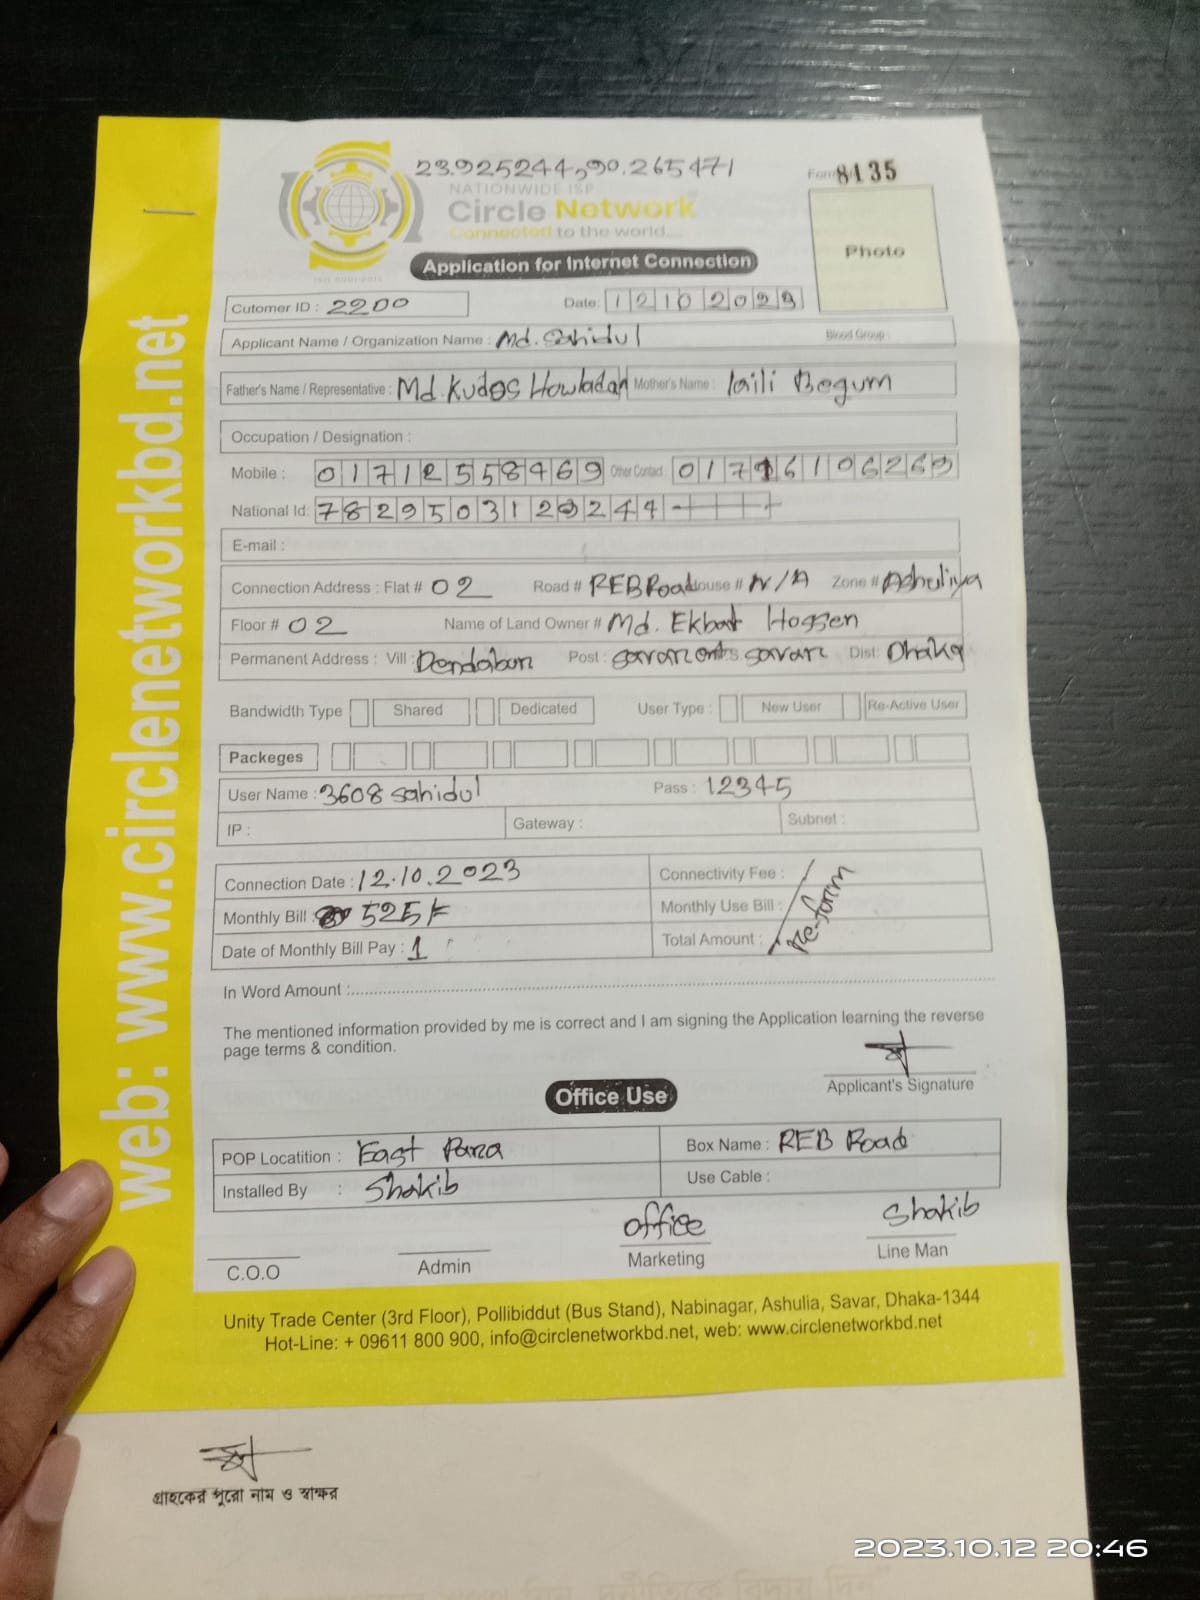 23.925244,90.265471
Form 8135
NATIONWIDE ISP
Circle Network
Connected to the world....
ISO 9001:2015
Photo
Application for Internet Connection
Cutomer ID : 2200
Date: 12102023
Applicant Name / Organization Name : Md. Sahidul
Blood Group :
Father's Name / Representative : Md. Kudos Howladar Mother's Name : laili Begum
Occupation / Designation :
Mobile : 01712558469 Other Contact : 01716106263
National Id: 7829503123244
E-mail :
Connection Address : Flat # 02 Road # REB Road House # N/A Zone # Ashuliya
Floor # 02 Name of Land Owner # Md. Ekbar Hossen
Permanent Address : Vill : Dendabor Post : savar cantt P.S. savar Dist: Dhaka
Bandwidth Type Shared Dedicated User Type : New User Re-Active User
Packeges
User Name : 3608 sahidul Pass : 12345
IP : Gateway : Subnet :
Connection Date : 12.10.2023 Connectivity Fee :
Monthly Bill : 525/= Monthly Use Bill :
Date of Monthly Bill Pay : 1 Total Amount :
Re-form
In Word Amount :
The mentioned information provided by me is correct and I am signing the Application learning the reverse
page terms & condition.
Applicant's Signature
Office Use
POP Locatition : East Para Box Name : REB Road
Installed By : Shakib Use Cable :
office Shakib
C.O.O Admin Marketing Line Man
Unity Trade Center (3rd Floor), Pollibiddut (Bus Stand), Nabinagar, Ashulia, Savar, Dhaka-1344
Hot-Line: + 09611 800 900, info@circlenetworkbd.net, web: www.circlenetworkbd.net
web: www.circlenetworkbd.net
গ্রাহকের পুরো নাম ও স্বাক্ষর
2023.10.12 20:46